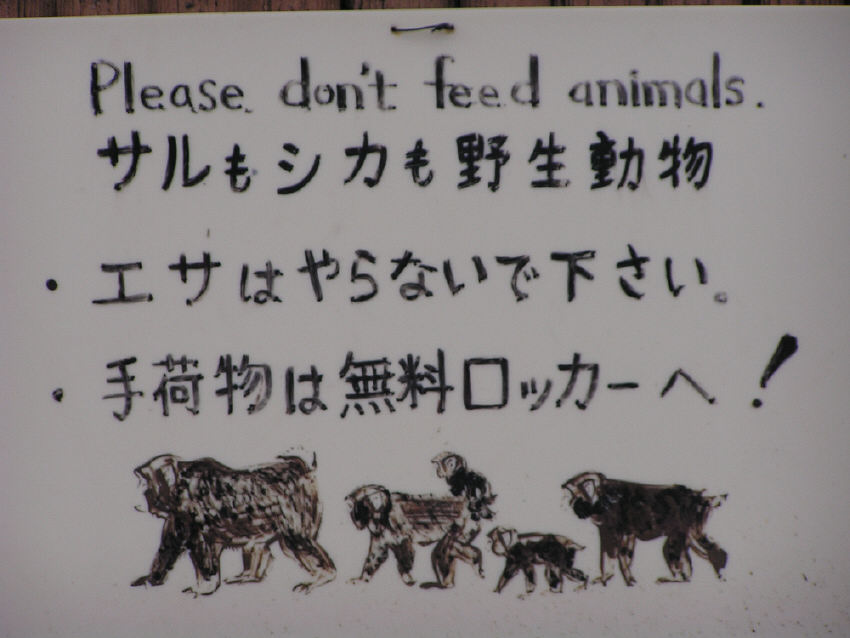 Please don't feed animals.
サルもシカも野生動物
・エサはやらないで下さい。
・手荷物は無料ロッカーへ!